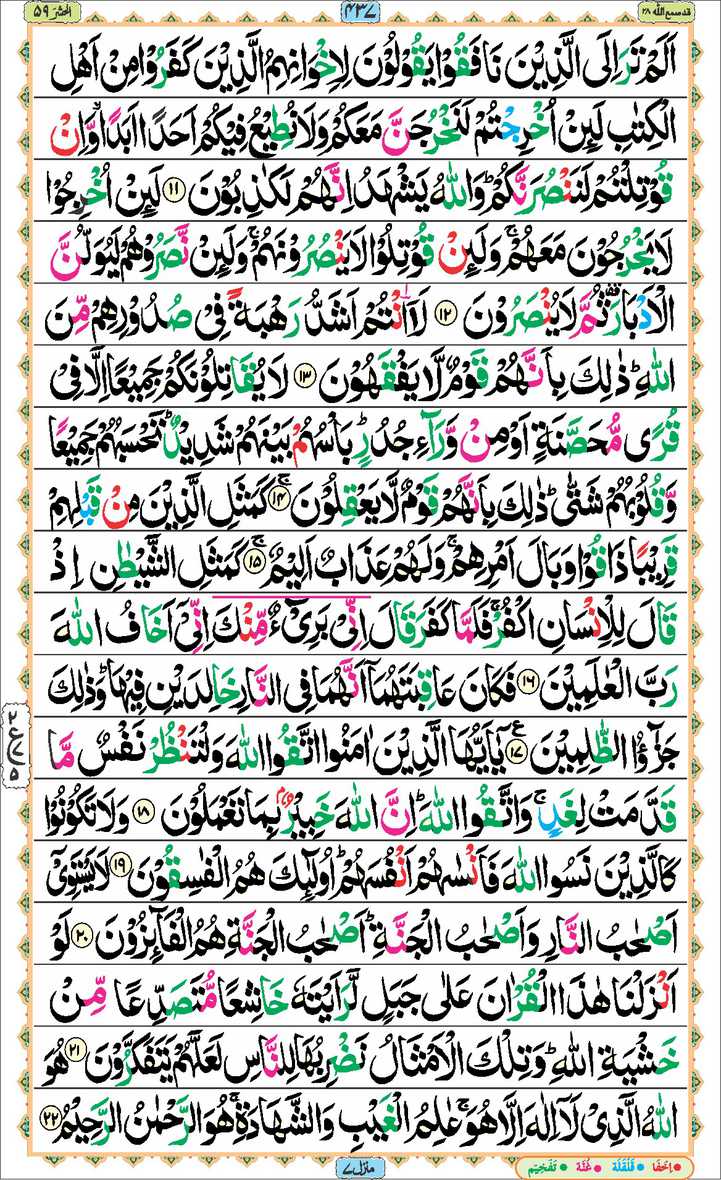 قد سمع الله ٢٨
٤٣٧
الحشر ٥٩
اَلَمْ تَرَ اِلَى الَّذِيْنَ نَافَقُوْا يَقُوْلُوْنَ لِاِخْوَانِهِمُ الَّذِيْنَ كَفَرُوْا مِنْ اَهْلِ
الْكِتٰبِ لَئِنْ اُخْرِجْتُمْ لَنَخْرُجَنَّ مَعَكُمْ وَلَا نُطِيْعُ فِيْكُمْ اَحَدًا اَبَدًا ۙ وَّاِنْ
قُوْتِلْتُمْ لَنَنْصُرَنَّكُمْ ؕ وَاللّٰهُ يَشْهَدُ اِنَّهُمْ لَكٰذِبُوْنَ ﴿۱۱﴾ لَئِنْ اُخْرِجُوْا
لَا يَخْرُجُوْنَ مَعَهُمْ ۚ وَلَئِنْ قُوْتِلُوْا لَا يَنْصُرُوْنَهُمْ ۚ وَلَئِنْ نَّصَرُوْهُمْ لَيُوَلُّنَّ
الْاَدْبَارَ ۟ ثُمَّ لَا يُنْصَرُوْنَ ﴿۱۲﴾ لَاَانْتُمْ اَشَدُّ رَهْبَةً فِيْ صُدُوْرِهِمْ مِّنَ
اللّٰهِ ؕ ذٰلِكَ بِاَنَّهُمْ قَوْمٌ لَّا يَفْقَهُوْنَ ﴿۱۳﴾ لَا يُقَاتِلُوْنَكُمْ جَمِيْعًا اِلَّا فِيْ
قُرًى مُّحَصَّنَةٍ اَوْ مِنْ وَّرَآءِ جُدُرٍ ؕ بَاْسُهُمْ بَيْنَهُمْ شَدِيْدٌ ؕ تَحْسَبُهُمْ جَمِيْعًا
وَّقُلُوْبُهُمْ شَتّٰى ؕ ذٰلِكَ بِاَنَّهُمْ قَوْمٌ لَّا يَعْقِلُوْنَ ۚ﴿۱۴﴾ كَمَثَلِ الَّذِيْنَ مِنْ قَبْلِهِمْ
قَرِيْبًا ذَاقُوْا وَبَالَ اَمْرِهِمْ ۚ وَلَهُمْ عَذَابٌ اَلِيْمٌ ۚ﴿۱۵﴾ كَمَثَلِ الشَّيْطٰنِ اِذْ
قَالَ لِلْاِنْسَانِ اكْفُرْ ۚ فَلَمَّا كَفَرَ قَالَ اِنِّيْ بَرِيْٓءٌ مِّنْكَ اِنِّيْٓ اَخَافُ اللّٰهَ
رَبَّ الْعٰلَمِيْنَ ﴿۱۶﴾ فَكَانَ عَاقِبَتَهُمَآ اَنَّهُمَا فِي النَّارِ خَالِدَيْنِ فِيْهَا ؕ وَذٰلِكَ
جَزٰٓؤُا الظّٰلِمِيْنَ ﴿۱۷﴾ يٰٓاَيُّهَا الَّذِيْنَ اٰمَنُوا اتَّقُوا اللّٰهَ وَلْتَنْظُرْ نَفْسٌ مَّا
قَدَّمَتْ لِغَدٍ ۚ وَاتَّقُوا اللّٰهَ ؕ اِنَّ اللّٰهَ خَبِيْرٌۢ بِمَا تَعْمَلُوْنَ ﴿۱۸﴾ وَلَا تَكُوْنُوْا
كَالَّذِيْنَ نَسُوا اللّٰهَ فَاَنْسٰىهُمْ اَنْفُسَهُمْ ؕ اُولٰٓئِكَ هُمُ الْفٰسِقُوْنَ ﴿۱۹﴾ لَا يَسْتَوِيْٓ
اَصْحٰبُ النَّارِ وَاَصْحٰبُ الْجَنَّةِ ؕ اَصْحٰبُ الْجَنَّةِ هُمُ الْفَآئِزُوْنَ ﴿۲۰﴾ لَوْ
اَنْزَلْنَا هٰذَا الْقُرْاٰنَ عَلٰى جَبَلٍ لَّرَاَيْتَهٗ خَاشِعًا مُّتَصَدِّعًا مِّنْ
خَشْيَةِ اللّٰهِ ؕ وَتِلْكَ الْاَمْثَالُ نَضْرِبُهَا لِلنَّاسِ لَعَلَّهُمْ يَتَفَكَّرُوْنَ ﴿۲۱﴾ هُوَ
اللّٰهُ الَّذِيْ لَآ اِلٰهَ اِلَّا هُوَ ۚ عٰلِمُ الْغَيْبِ وَالشَّهَادَةِ ۚ هُوَ الرَّحْمٰنُ الرَّحِيْمُ ﴿۲۲﴾
منزل ٧
اِخفَا قَلْقَلَة غُنَّة تَفْخِيْم